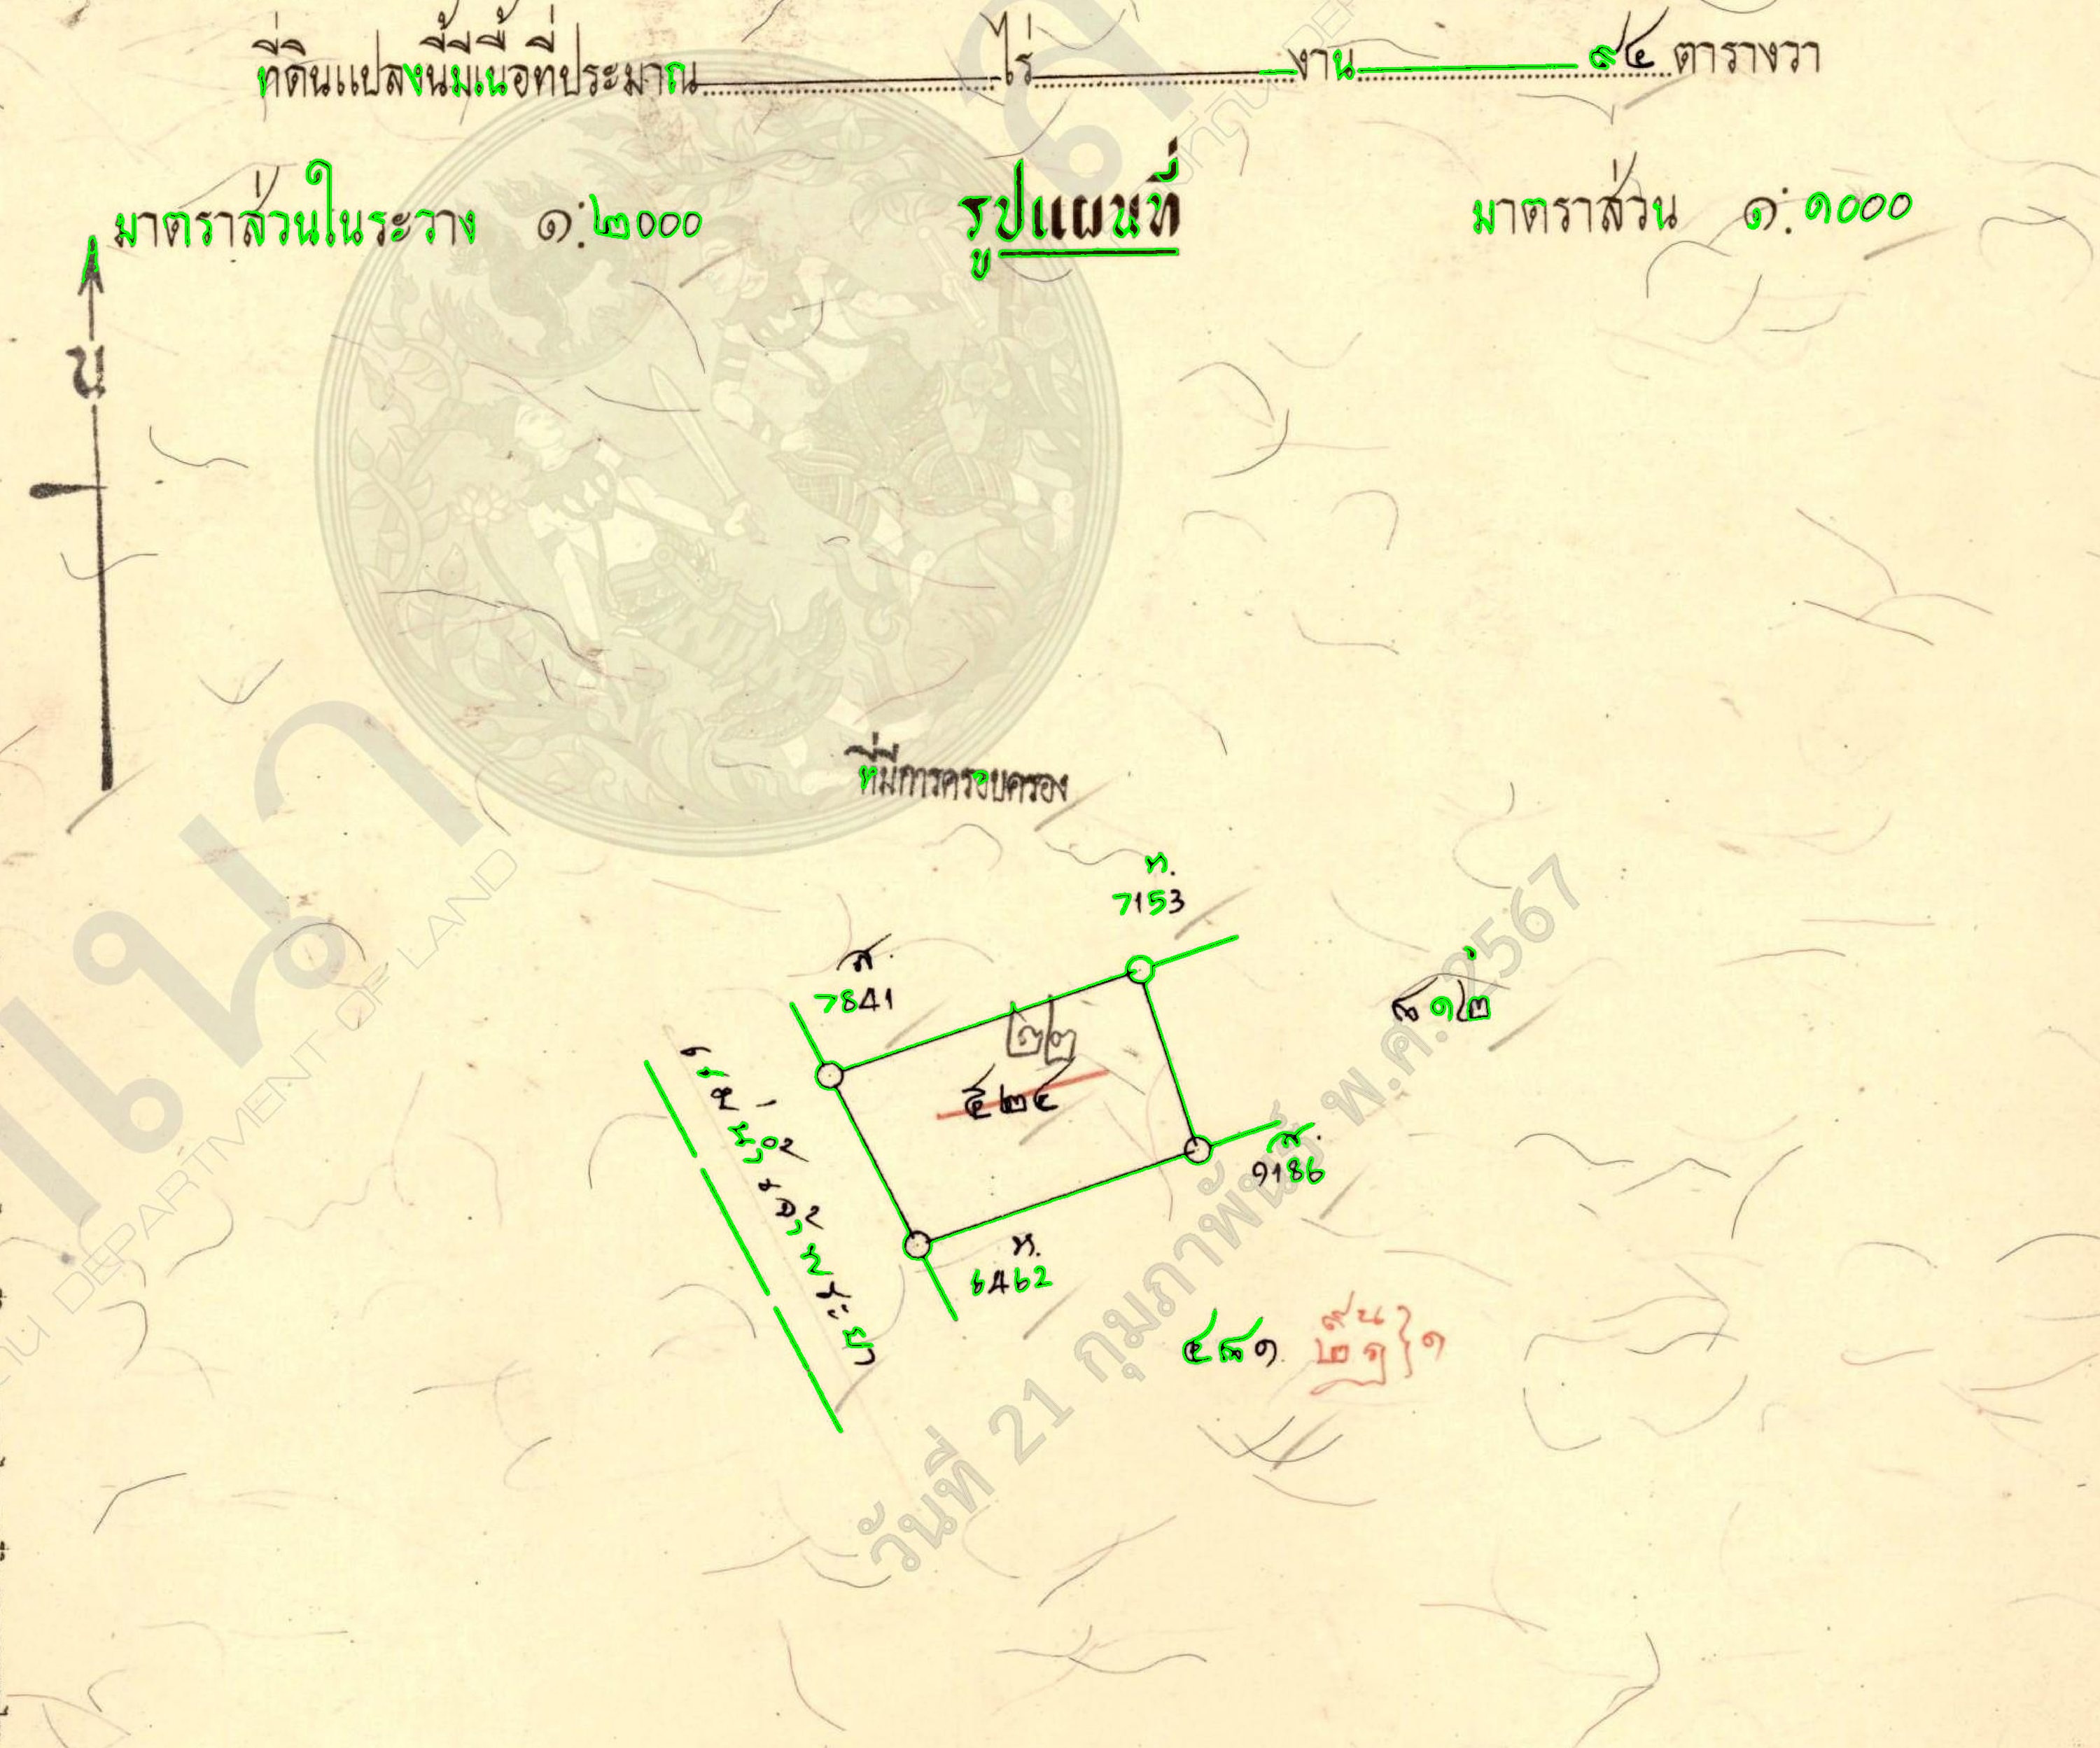 ที่ดินแปลงนี้มีเนื้อที่ประมาณ ไร่ งาน ๙๔ ตารางวา
มาตราส่วนในระวาง ๑:๒๐๐๐ รูปแผนที่ มาตราส่วน ๑:๑๐๐๐
น
ที่มีการครอบครอง
ท.
7153
ส.
7841
๒๒
๕๒๔
ส.
9186
ท.
6462
๕๘๑
DEPARTMENT OF LAND
วันที่ 21 กุมภาพันธ์ พ.ศ. 2567